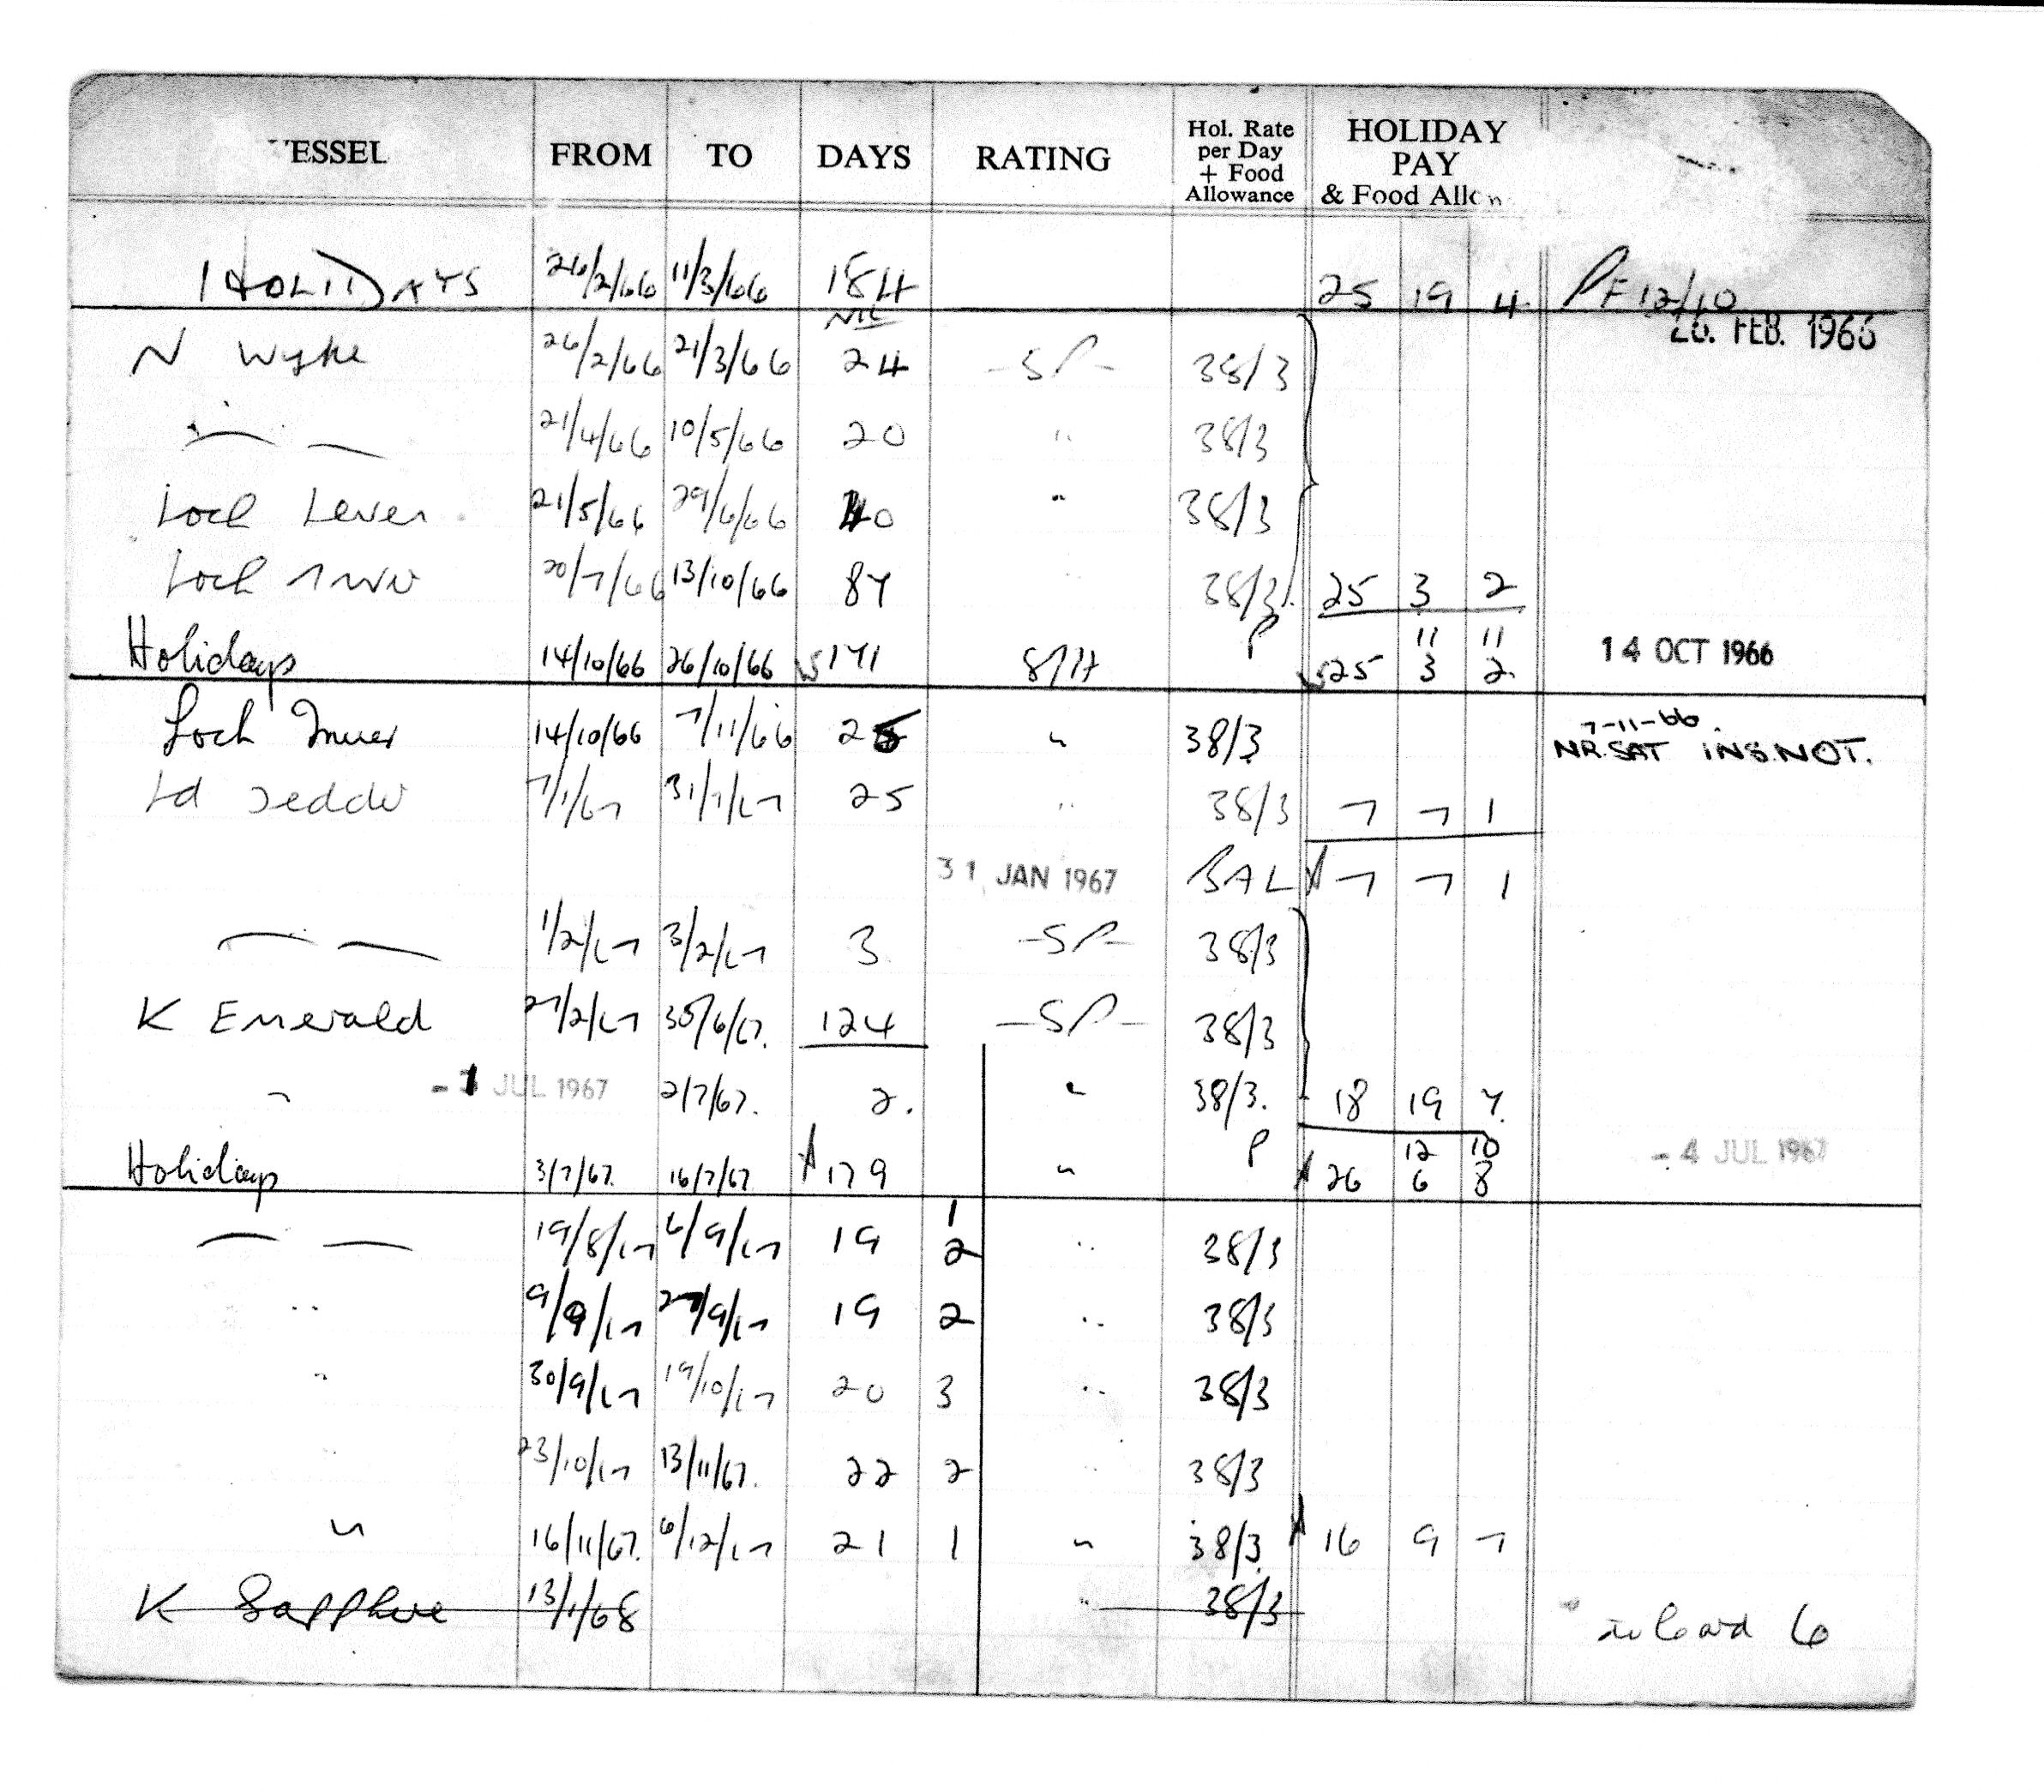 VESSEL FROM TO DAYS RATING Hol. Rate per Day + Food Allowance HOLIDAY PAY & Food Allo
HOLIDAYS 26/2/66 11/3/66 184 25 19 4 PF 12/10
NIL 26. FEB. 1966
N Wyke 26/2/66 21/3/66 24 -SP- 38/3
" 21/4/66 10/5/66 20 " 38/3
Loch Leven 21/5/66 29/6/66 40 " 38/3
Loch 20/7/66 13/10/66 87 " 38/3 25 3 2
P 11 11
Holidays 14/10/66 26/10/66 171 25 3 2 14 OCT 1966
Loch Inver 14/10/66 7/11/66 25 " 38/3 7-11-66.
NR.SAT INS.NOT.
Ld Tedder 7/1/67 31/1/67 25 " 38/3 7 7 1
31 JAN 1967 BAL 7 7 1
1/2/67 3/2/67 3 -SP- 38/3
K Emerald 27/2/67 30/6/67. 124 -SP- 38/3
" - JUL 1967 2/7/67. 2. " 38/3. 18 19 7.
P 12 10
Holidays 3/7/67. 16/7/67 179 " 26 6 8 - 4 JUL 1967
19/8/67 6/9/67 19 1 2 " 38/3
" 9/9/67 27/9/67 19 2 " 38/3
" 30/9/67 19/10/67 20 3 " 38/3
23/10/67 13/11/67. 22 2 " 38/3
" 16/11/67. 6/12/67 21 1 " 38/3. 16 9 7
K Sapphire 13/1/68 " 38/3 Card 6